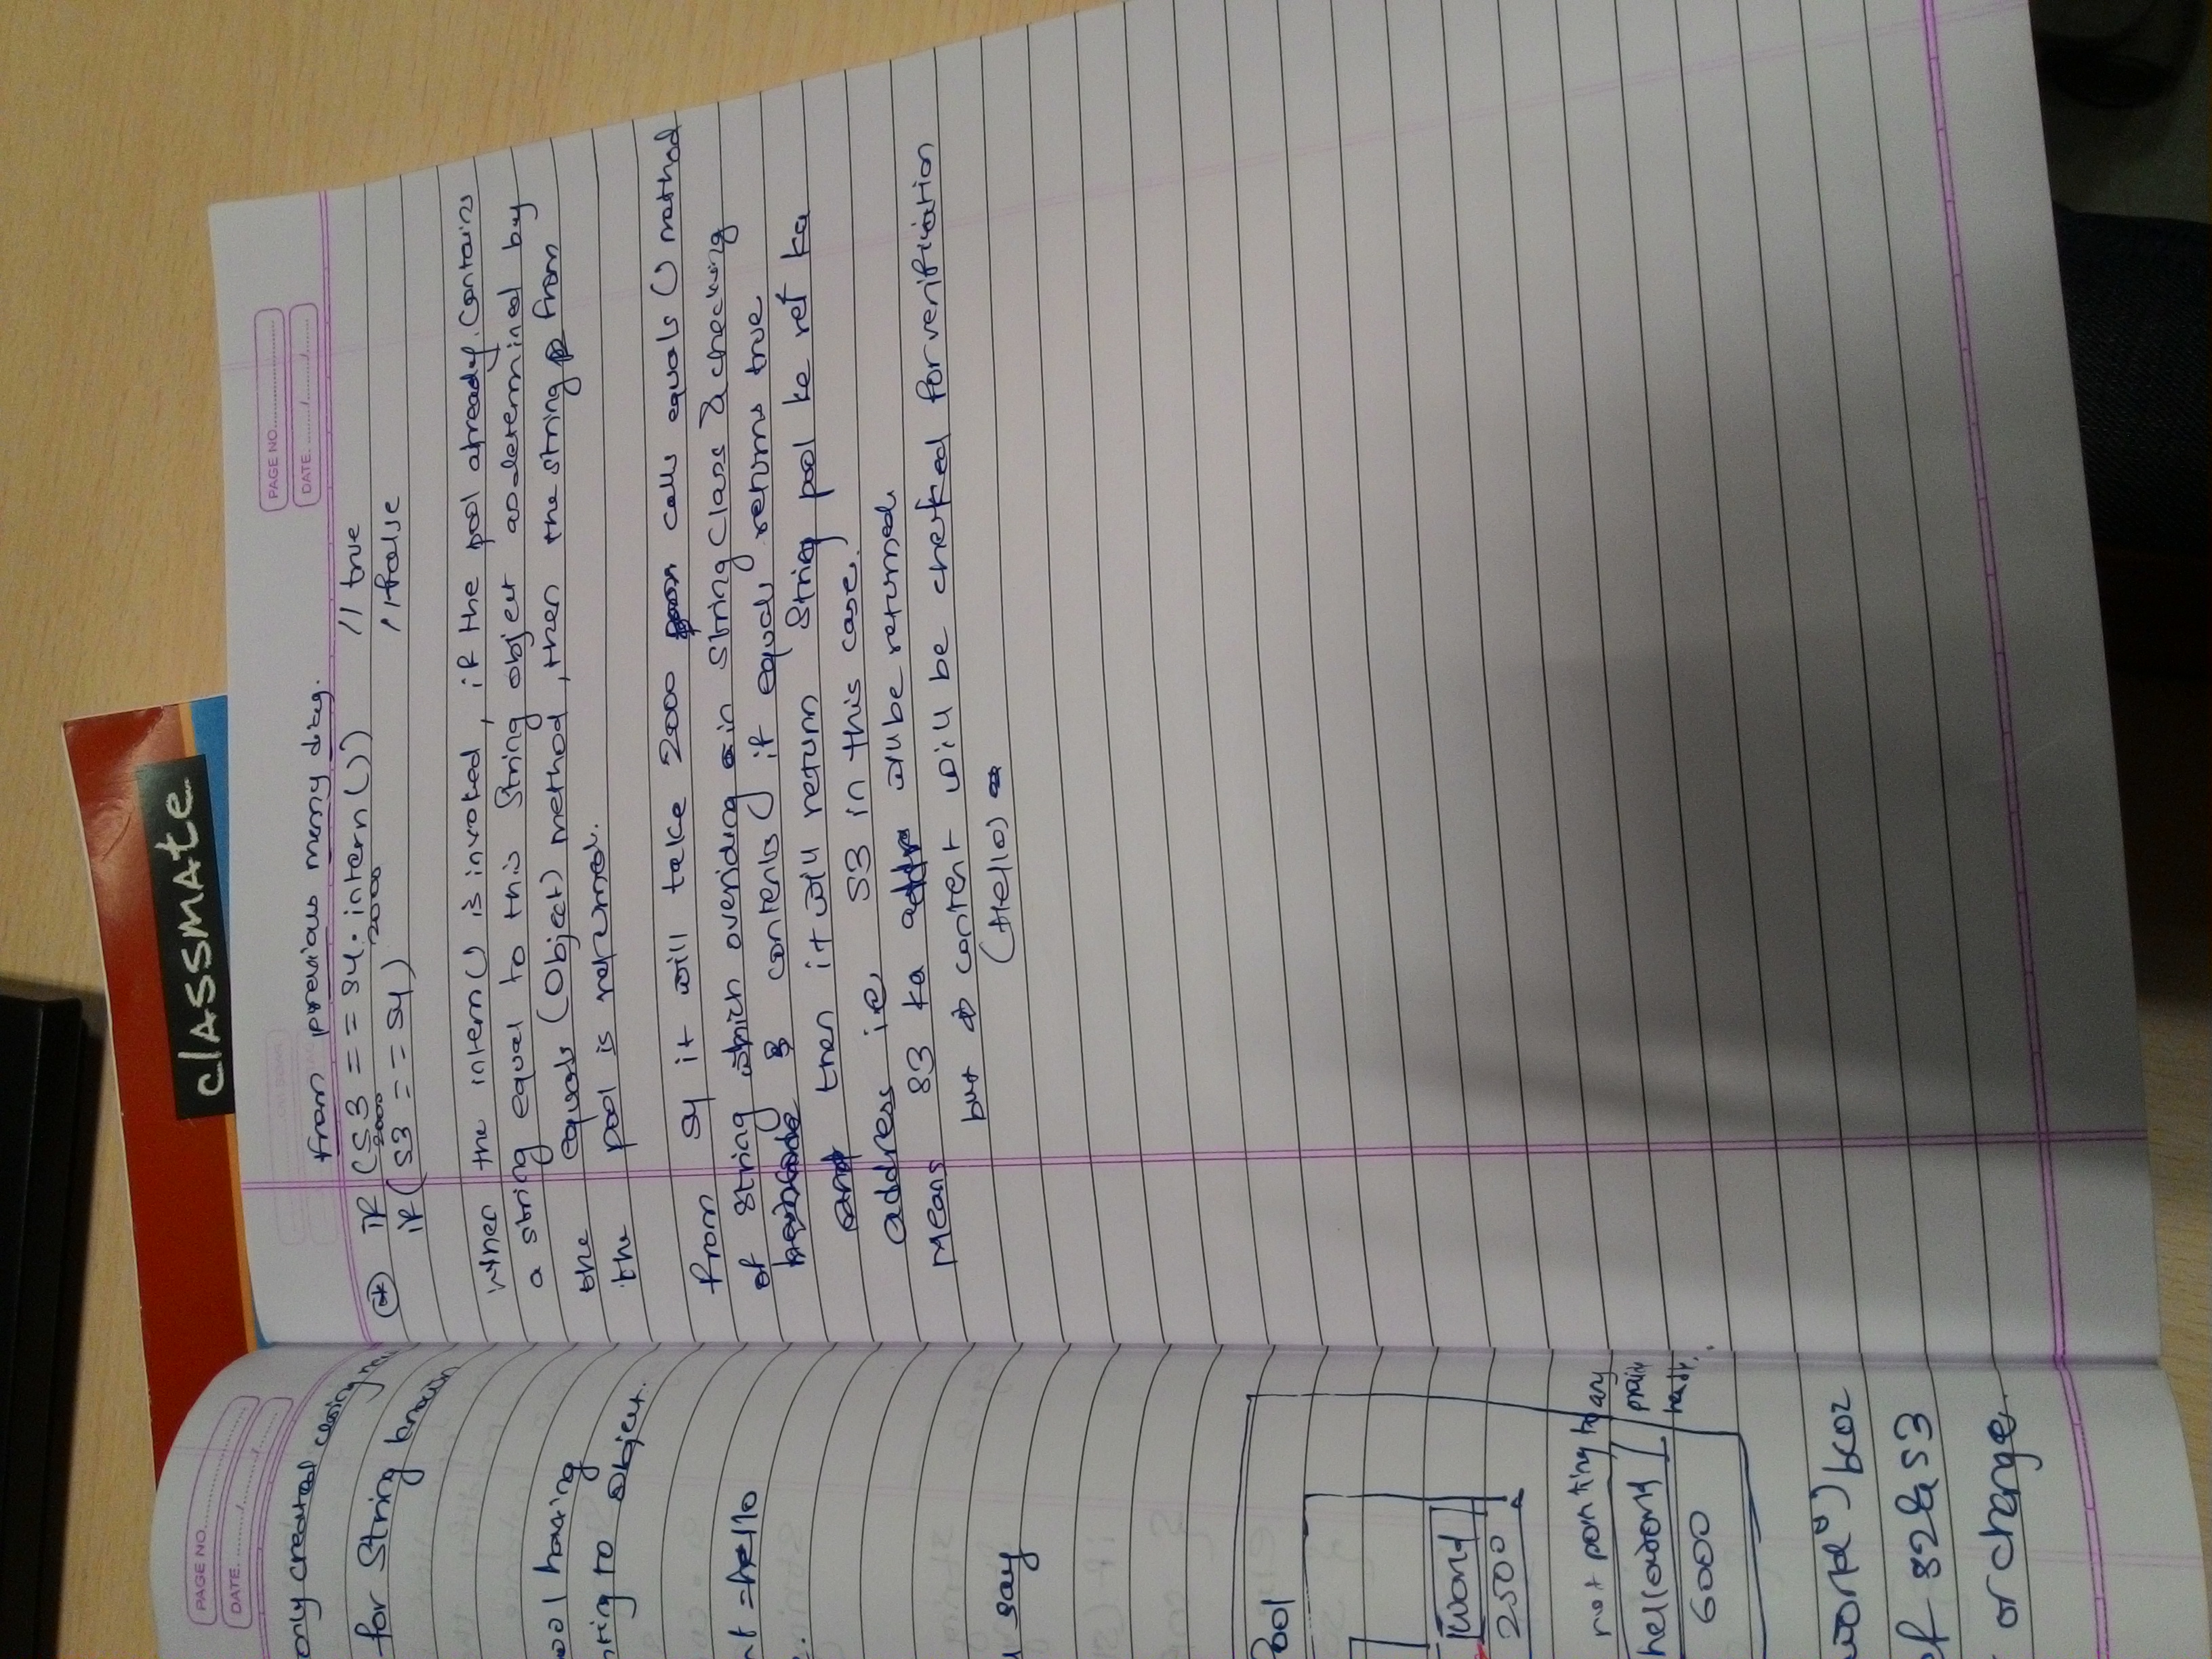 classmate
PAGE NO.
DATE. ........./........./.........
only created using
for String known
ool having
nting to Object.
nt = hello
say
Pool
World
2500
not pointing to any
helloworld
6000
world") bcoz
ef S2 & S3
or change.
PAGE NO.
DATE. ........./........./.........
from previous memry diag.
* if (S3 == S4.intern()) // true
2000 2000
if (S3 == S4) // false
When the intern() is invoked, if the pool already contains
a string equal to this String object as determined by
the equals (Object) method, then the string from
the pool is returned.
from S4 it will take 2000 calls equals () method
of String which overiding in String Class & checking
contents if equals returns true
then it will return String pool ke ref ka
address i.e. S3 in this case.
Means S3 ka will be returned
but content will be checked for verification
(Hello)